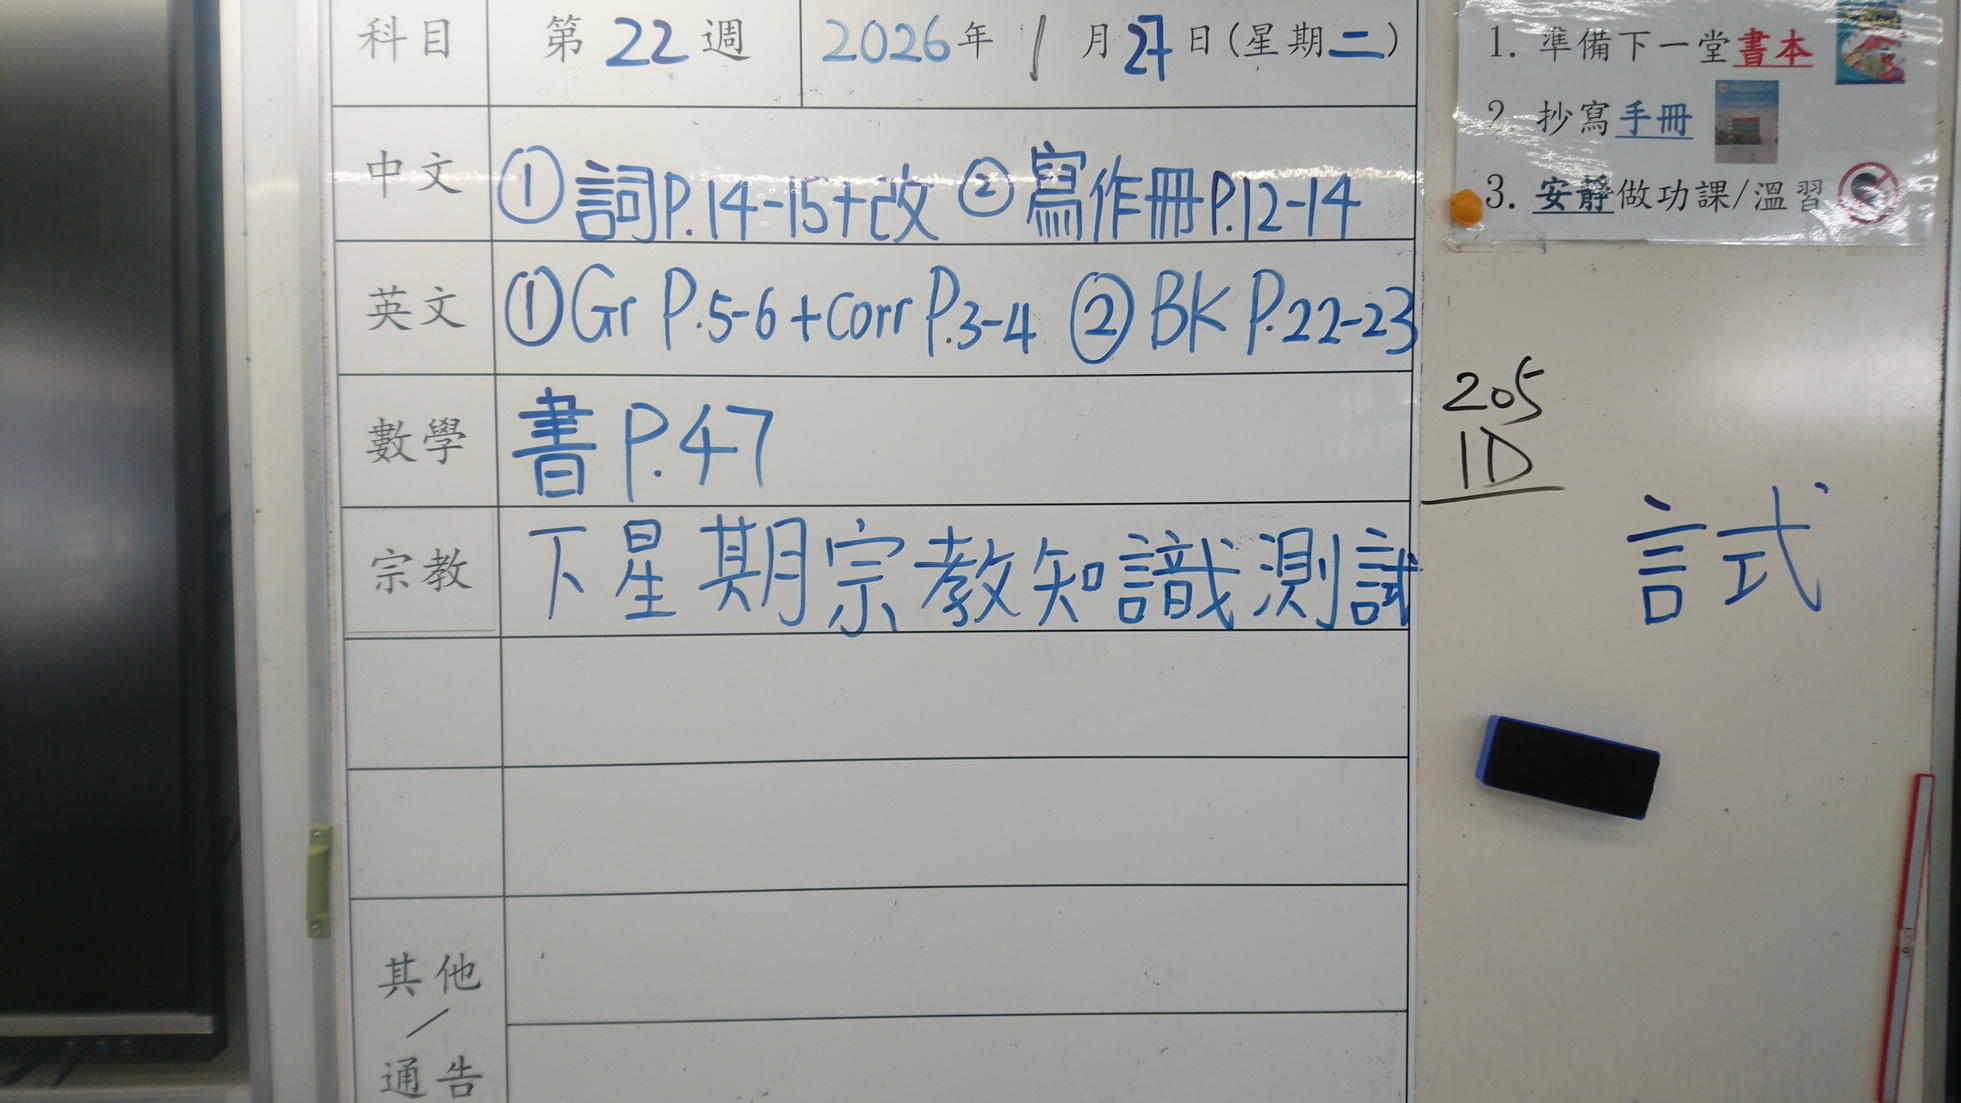 科目 第22週 2026年1月27日(星期二)
中文 ①詞P.14-15+改 ②寫作冊P.12-14
英文 ①Gr P.5-6+Corr P.3-4 ②BK P.22-23
數學 書P.47
宗教 下星期宗教知識測試
其他
/
通告
1. 準備下一堂書本
2. 抄寫手冊
3. 安靜做功課/溫習
205
1D
試